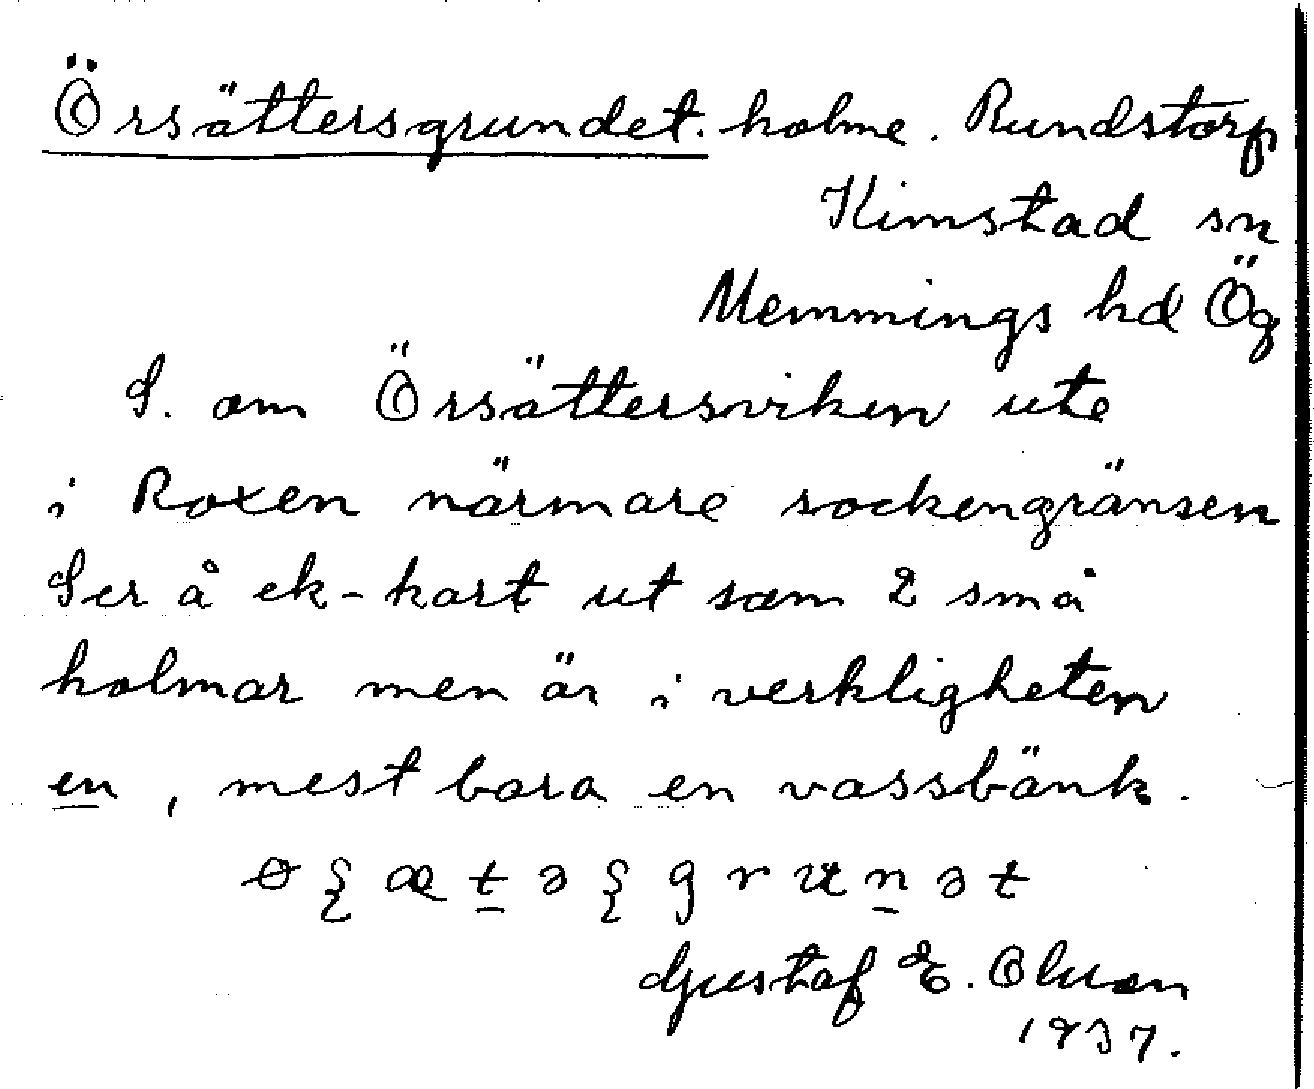 Örsättersgrundet. holme. Rundstorp
Kimstad sn
Memmings hd Ög
S. om Örsättersviken ute
i Roxen närmare sockengränsen
Ser å ek-kart ut som 2 små
holmar men är i verkligheten
en, mest bara en vassbänk.
Gustaf E. Olsson
1937.